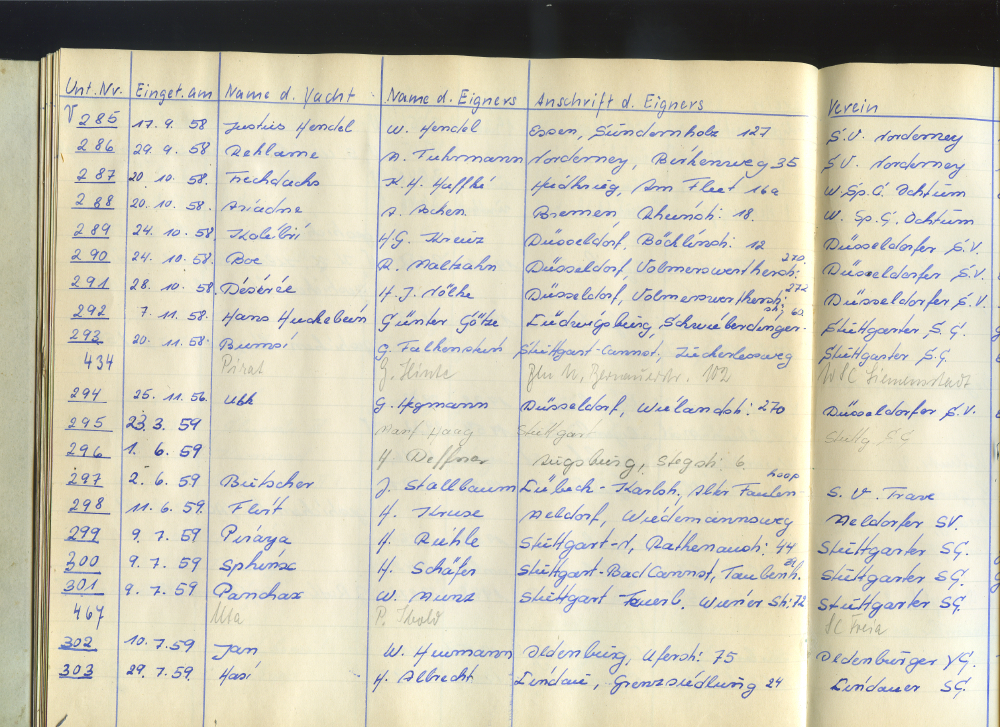 Unt. Nr. Einget. am Name d. Yacht Name d. Eigners Anschrift d. Eigners Verein
V 285 17. 9. 58 Justus Hendel W. Hendel Essen, Sundernholz 127 S.V. Norderney
286 29. 9. 58 Reklame A. Fuhrmann Norderney, Birkenweg 35 S.V. Norderney
287 20. 10. 58. Frechdachs K.H. Haffké Am Fleet 16a W.Sp.G. Ochtum
288 20. 10. 58. Ariadne A. Bremen, Rheinstr. 18. W. Sp.G. Ochtum
289 24. 10. 58. Kolibri H.G. Kreuz Düsseldorf, Böcklinstr. 12 Düsseldorfer S.V.
290 24. 10. 58. Boe R. Maltzahn Düsseldorf, Volmerswertherstr. 270. Düsseldorfer S.V.
291 28. 10. 58. Désérée H.J. Nölke Düsseldorf, Volmerswertherstr. 272 Düsseldorfer S.V.
292 7. 11. 58. Hans Huckebein Günter Götze Ludwigsburg, Schwieberdinger- str. 60. Stuttgarter S.G.
293 20. 11. 58. Bumsi G. Falkenstein Stuttgart-Cannst., Zuckerlesweg Stuttgarter S.G.
434 Pirat J. Hinte Bln N, Bernauerstr. 102 WSC Siemensstadt
294 25. 11. 56. Ubk G. Hegmann Düsseldorf, Wielandstr. 270 Düsseldorfer S.V.
295 23. 3. 59 Manf. Haag Stuttgart Stuttg SG
296 1. 6. 59 H Deffner Augsburg, Stegstr. 6.
297 2. 6. 59 Butscher J. Stallbaum Lübeck-Karlsh., Alter Faulen- hoop S.V. Trave
298 11. 6. 59. Flirt H. Kruse Meldorf, Wiedemannsweg Meldorfer SV.
299 9. 7. 59 Piraya H. Rühle Stuttgart-N, Rathenaustr. 44 Stuttgarter SG.
300 9. 7. 59 Sphinx H. Schäfer Stuttgart-Bad Cannst, Taubenh. Stuttgarter SG.
301 9. 7. 59 Panchax W. Munz Stuttgart Feuerb. Wiener Str. 72 Stuttgarter SG.
467 Uta P. SC Freia
302 10. 7. 59 Jan W. Husmann Oldenburg, Uferstr. 75 Oldenburger YC.
303 29. 7. 59. Hasi H. Albrecht Lindau, Grenzsiedlung 24 Lindauer SG.